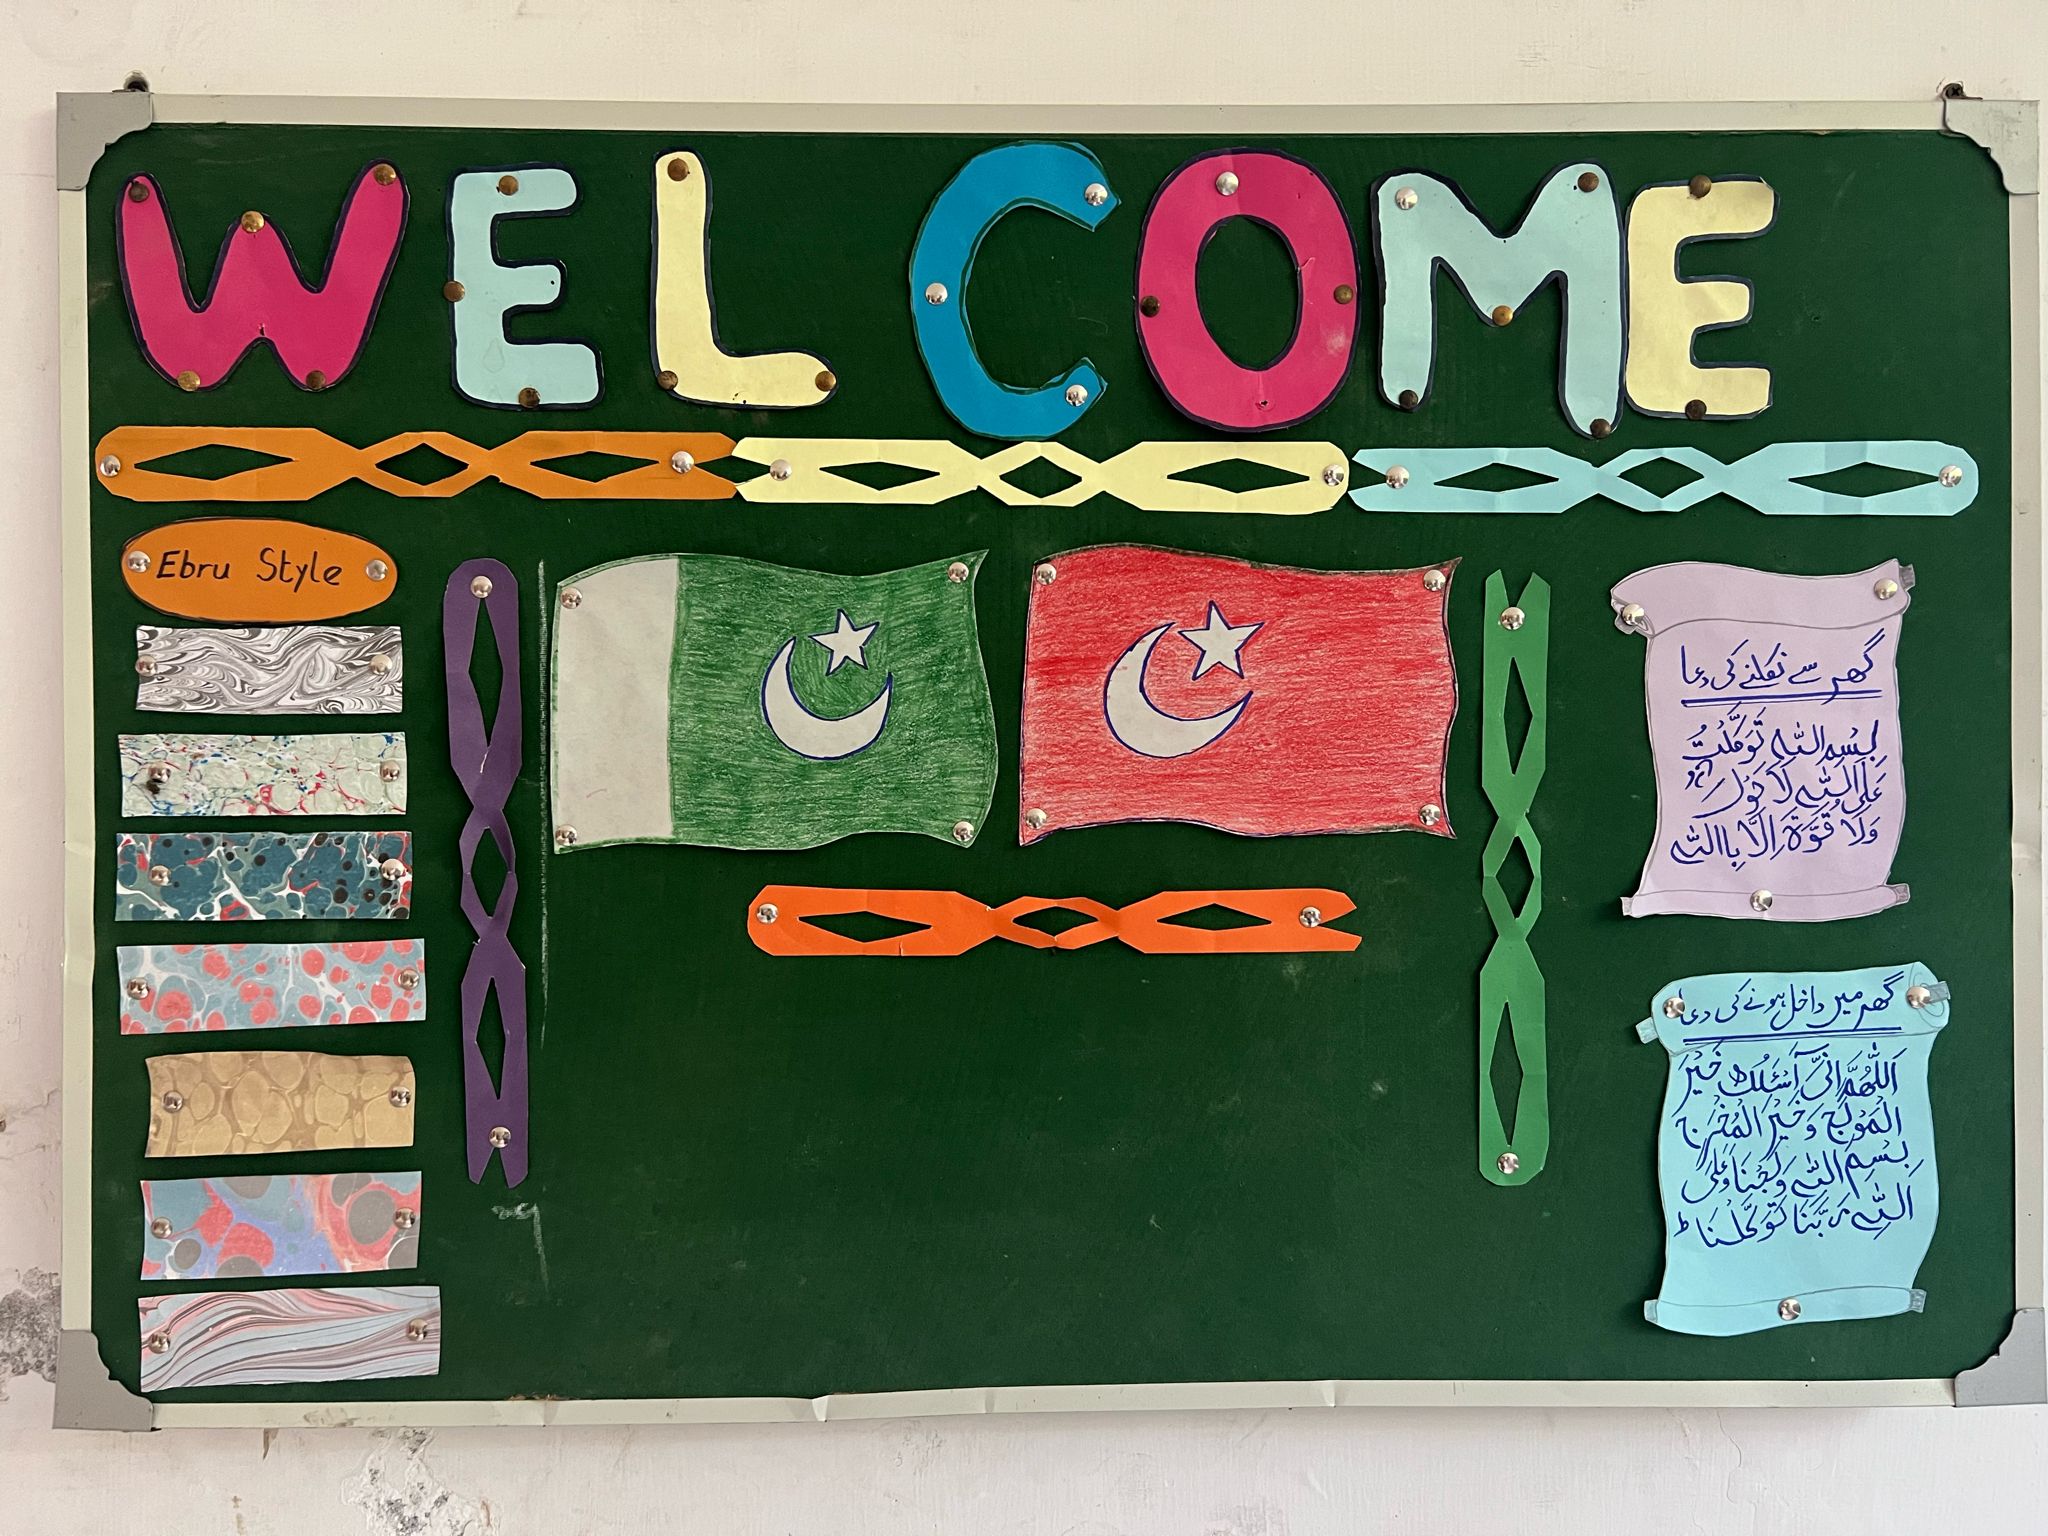 WELCOME
Ebru Style
گھر سے نکلنے کی دعا
بِسْمِ اللّٰهِ تَوَكَّلْتُ
عَلَى اللّٰهِ لَا حَوْلَ
وَلَا قُوَّةَ اِلَّا بِااللّٰه
گھر میں داخل ہونے کی دعا
اَللّٰهُمَّ اِنِّیْ اَسْئَلُكَ خَيْرَ
الْمَوْلَجِ وَ خَيْرَ الْمَخْرَجِ
بِسْمِ اللّٰهِ وَلَجْنَا وَعَلَى
اللّٰهِ رَبِّنَا تَوَكَّلْنَا ط